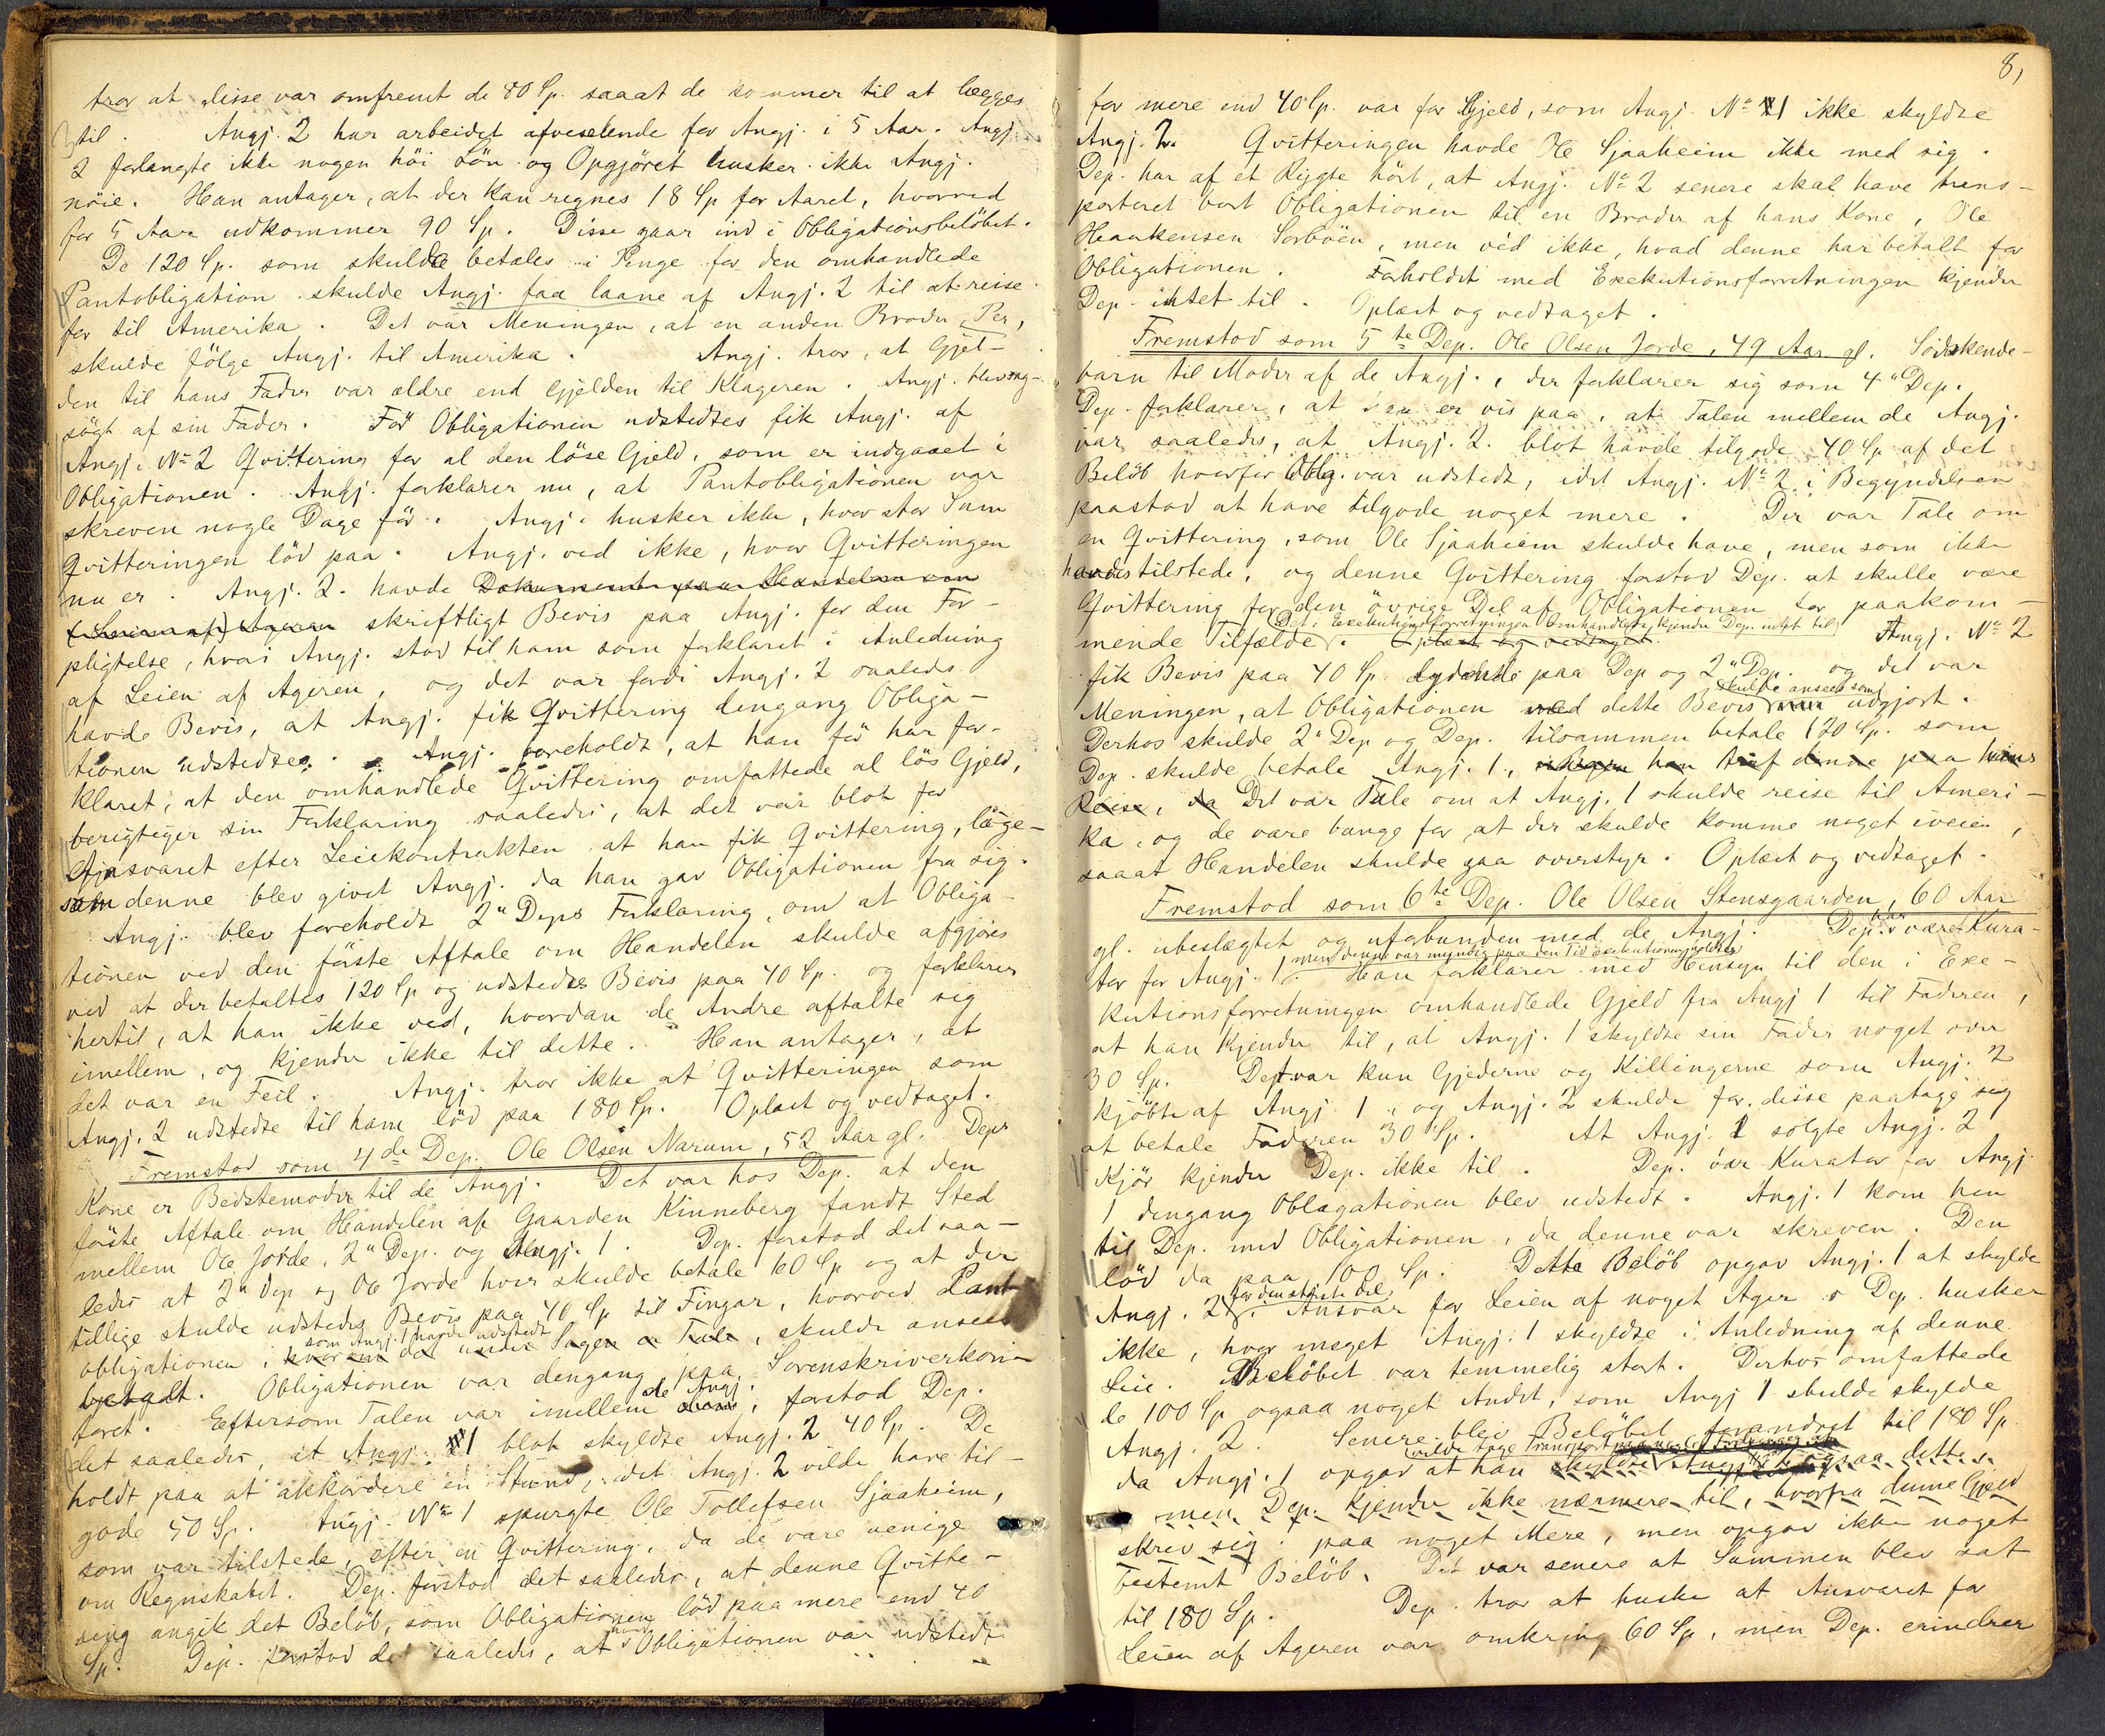 tror at disse var omfremt de 80 Sp. saaat de kommer til at lægges
til. Angj. 2 har arbeidet afvexlende for Angj. i 5 Aar. Angj.
2 forlangte ikke nogen höi Lön og Opgjöret husker ikke Angj.
nöie. Han antager, at der kan regnes 18 Sp for Aaret, hvorved
for 5 Aar udkommer 90 Sp. Disse gaar ind i Obligationsbelöbet.
De 120 Sp. som skulde betales i Penge for den omhandlede
Pantobligation skulde Angj. faa laane af Angj. 2 til at reise
for til Amerika. Det var Meningen, at en anden Broder, Per,
skulde fölge Angj. til Amerika. Angj. tror, at Gjel-
den til hans Fader var ældre end Gjelden til Klageren. Angj. blev sag-
sögt af sin Fader. För Obligationen udstedtes fik Angj. af
Angj. No 2 Qvittering for al den löse Gjeld, som er indgaaet i
Obligationen. Angj. forklarer nu, at Pantobligationen var
skreven nogle Dage för. Angj. husker ikke, hvor stor Sum
Qvitteringen löd paa. Angj. ved ikke, hvor Qvitteringen
nu er. Angj. 2. havde Dokument paa Handelen om
skriftligt Bevis paa Angj. for den For-
pligtelse, hvori Angj. stod til ham som forklaret i Anledning
af Leien af Ageren, og det var fordi Angj. 2 saaledes
havde Bevis, at Angj. fik Qvittering dengang Obliga-
tionen udstedtes. Angj. foreholdt, at han för har for-
klaret, at den omhandlede Qvittering omfattede al lös Gjeld,
berigtiger sin Forklaring saaledes, at det var blot for
Ansvaret efter Leiekontrakten at han fik Qvittering, lige-
som denne blev givet Angj. da han gav Obligationen fra sig.
Angj. blev foreholdt 2" Deps Forklaring, om at Obliga-
tionen ved den förste Aftale om Handelen skulde afgjöres
ved at der betaltes 120 Sp og udstedes Bevis paa 40 Sp. og forklarer
hertil, at han ikke ved, hvordan de Andre aftalte sig
imellem, og kjender ikke til dette. Han antager, at
det var en Feil. Angj. tror ikke at Qvitteringen som
Angj. 2 udstedte til ham löd paa 180 Sp. Oplæst og vedtaget.
Fremstod som 4de Dep. Ole Olsen Narum, 52 Aar gl. Deps
Kone er Bedstemoder til de Angj. Det var hos Dep. at den
förste Aftale om Handelen af Gaarden Kinneberg fandt Sted
mellem Ole Jorde, 2" Dep. og Angj. 1. Dep. forstod det saa-
ledes at 2" Dep og Ole Jorde hver skulde betale 60 Sp og at der
tillige skulde udstedes Bevis paa 40 Sp til Fingar, hvorved Pant-
som Angj. 1 havde udstedt
obligationen, hvorom der under Sagen er Tale, skulde ansees
betalt. Obligationen var dengang paa Sorenskriverkon-
toret. Eftersom Talen var imellem de Angj., forstod Dep.
det saaledes, at Angj. 1 blot skyldte Angj. 2 40 Sp. De
holdt paa at akkordere en Stund, idet Angj. 2 vilde have til-
gode 50 Sp. Angj. No 1 spurgte Ole Tollefsen Sjaaheim,
som var tilstede, efter en Qvittering, da de vare uenige
om Regnskabet. Dep. forstod det saaledes, at denne Qvitte-
ring angik det Belöb, som Obligationen löd paa mere end 40
Sp. Dep. forstod det saaledes, at hvad Obligationen var udstedt
8,
for mere end 40 Sp. var for Gjeld, som Angj. No 1 ikke skyldte
Angj. 2. Qvitteringen havde Ole Sjaaheim ikke med sig.
Dep. har af et Rygte hört, at Angj. No 2 senere skal have trans-
porteret bort Obligationen til en Broder af hans Kone, Ole
Haakensen Sorböen, men ved ikke, hvad denne har betalt for
Obligationen. Forholdet med Exekutionsforretningen kjender
Dep. intet til. Oplæst og vedtaget.
Fremstod som 5te Dep. Ole Olsen Jorde, 49 Aar gl. Södskende-
barn til Moder af de Angj., der forklarer sig som 4" Dep.
Dep. forklarer, at han er vis paa, at Talen mellem de Angj.
var saaledes, at Angj. 2. blot havde tilgode 40 Sp af det
Belöb hvorfor Oblg. var udstedt, idet Angj. No 2 i Begyndelsen
paastod at have tilgode noget mere. Der var Tale om
en Qvittering, som Ole Sjaaheim skulde have, men som ikke
havdes tilstede, og denne Qvittering forstod Dep. at skulle være
Qvittering for den övrige Del af Obligationen for paakom-
Det i Exekutionsforretningen Omhandlede kjender Dep. intet til
mende Tilfælde. Oplæst og vedtaget. Angj. No 2
fik Bevis paa 40 Sp. lydende paa Dep og 2" Dep. og det var
skulde ansees som
Meningen, at Obligationen med dette Bevis var udgjort.
Derhos skulde 2" Dep og Dep. tilsammen betale 120 Sp. som
Dep. skulde betale Angj. 1, han traf denne paa hans
Reise, da Det var Tale om at Angj. 1 skulde reise til Ameri-
ka, og de vare bange for at der skulde komme noget iveien,
saaat Handelen skulde gaa overstyr. Oplæst og vedtaget.
Fremstod som 6te Dep. Ole Olsen Stensgaarden, 60 Aar
gl. ubeslægtet og uforbunden med de Angj. Dep. har været Kura-
men denne var myndig paa den Tid Exekutionen holdtes
tor for Angj. 1. Han forklarer med Hensyn til den i Exe-
kutionsforretningen omhandlede Gjeld fra Angj 1 til Faderen,
at han kjender til, at Angj. 1 skyldte sin Fader noget over
30 Sp. Det var kun Gjederne og Killingerne som Angj. 2
kjöbte af Angj. 1, og Angj. 2 skulde for disse paatage sig
at betale Faderen 30 Sp. At Angj. 1 solgte Angj. 2
Kjör kjender Dep. ikke til. Dep. var Kurator for Angj.
1 dengang Oblagationen blev udstedt. Angj. 1 kom hen
til Dep. med Obligationen, da denne var skreven. Den
löd da paa 100 Sp. Dette Belöb opgav Angj. 1 at skylde
for den störste Del
Angj. 2 f. Ansvar for Leien af noget Ager. Dep. husker
ikke, hvor meget Angj. 1 skyldte i Anledning af denne
Leie. Belöbet var temmelig stort. Derhos omfattede
de 100 Sp ogsaa noget Andet, som Angj 1 skulde skylde
Angj. 2. Senere blev Belöbet forandret til 180 Sp.
vilde tage Transport
da Angj. 1 opgav at han skyldte Angj. ogsaa dette,
men Dep. kjender ikke nærmere til, hvorfra denne Gjeld
skrev sig. paa noget Mere, men opgav ikke noget
bestemt Belöb. Det var senere at Summen blev sat
til 180 Sp. Dep. tror at huske at Ansvaret for
Leien af Ageren var omkring 60 Sp, men Dep. erindrer